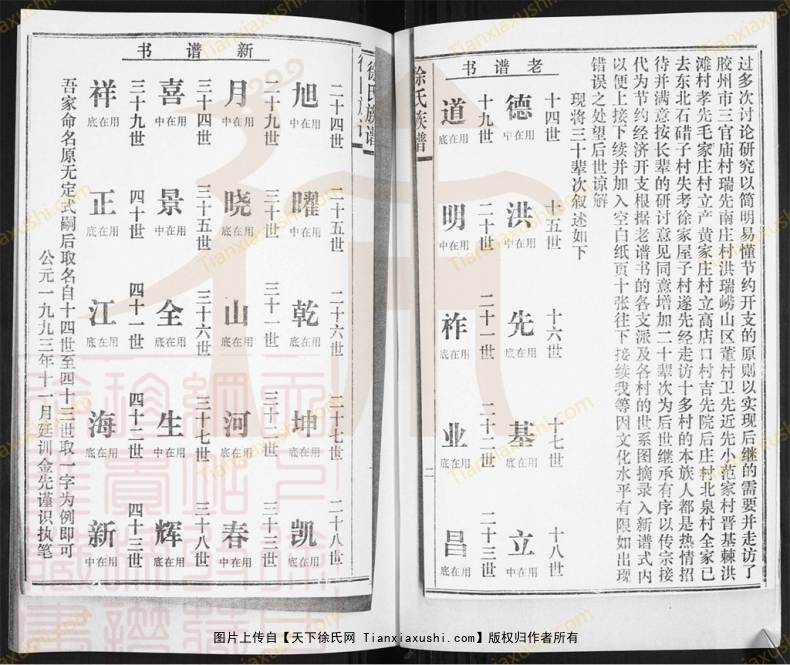 过多次讨论研究以简明易懂节约开支的原则以实现后继的需要并走访了
胶州市三官庙村瑞先南庄村洪瑞崂山区董村卫先近先小范家村晋基棘洪
滩村孝先毛家庄村立产黄家庄村立高店口村吉先院后庄村北泉村全家已
去东北石硝子村失考徐家屋子村遂先经走访十多村的本族人都是热情招
待并满意按长辈的研讨意见同意增加二十辈次为后世继承有序以传宗接
代为节约经济开支根据老谱书的各支派及各村的世系图摘录入新谱式内
以便上接下续并加入空白纸页十张往下接续我等因文化水平有限如出现
错误之处望后世谅解
现将三十辈次叙述如下
老谱书
十四世 十五世 十六世 十七世 十八世
德 中在用 洪 中在用 先 底在用 基 底在用 立 中在用
十九世 二十世 二十一世 二十二世 二十三世
道 底在用 明 中在用 祚 底在用 业 底在用 昌 底在用
徐氏族谱
二
徐氏族谱
新谱书
二十四世 二十五世 二十六世 二十七世 二十八世
旭 中在用 曜 中在用 乾 底在用 坤 底在用 凯 中在用
二十九世 三十世 三十一世 三十二世 三十三世
月 中在用 晓 中在用 山 底在用 河 底在用 春 中在用
三十四世 三十五世 三十六世 三十七世 三十八世
喜 中在用 景 中在用 全 底在用 生 中在用 辉 底在用
三十九世 四十世 四十一世 四十二世 四十三世
祥 底在用 正 底在用 江 底在用 海 底在用 新 底在用
吾家命名原无定式嗣后取名自十四世至四十三世取一字为例即可
公元一九九三年十一月廷训金先谨识执笔
图片上传自【天下徐氏网 Tianxiaxushi.com】版权归作者所有